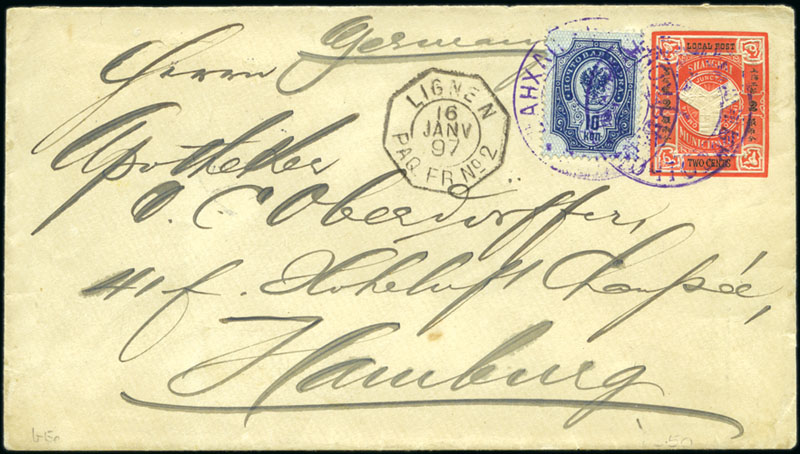 Germany
Herrn
Apotheker
O. C. Oberdörffer,
41 f. Hoheluft Chaussée,
Hamburg
LIGNE N
16
JANV
97
PAQ. FR. Nº 2
ПОЧТОВАЯ МАРКА
10
КОП
LOCAL POST
SHANGHAI
MUNICIPAL
TWO CENTS